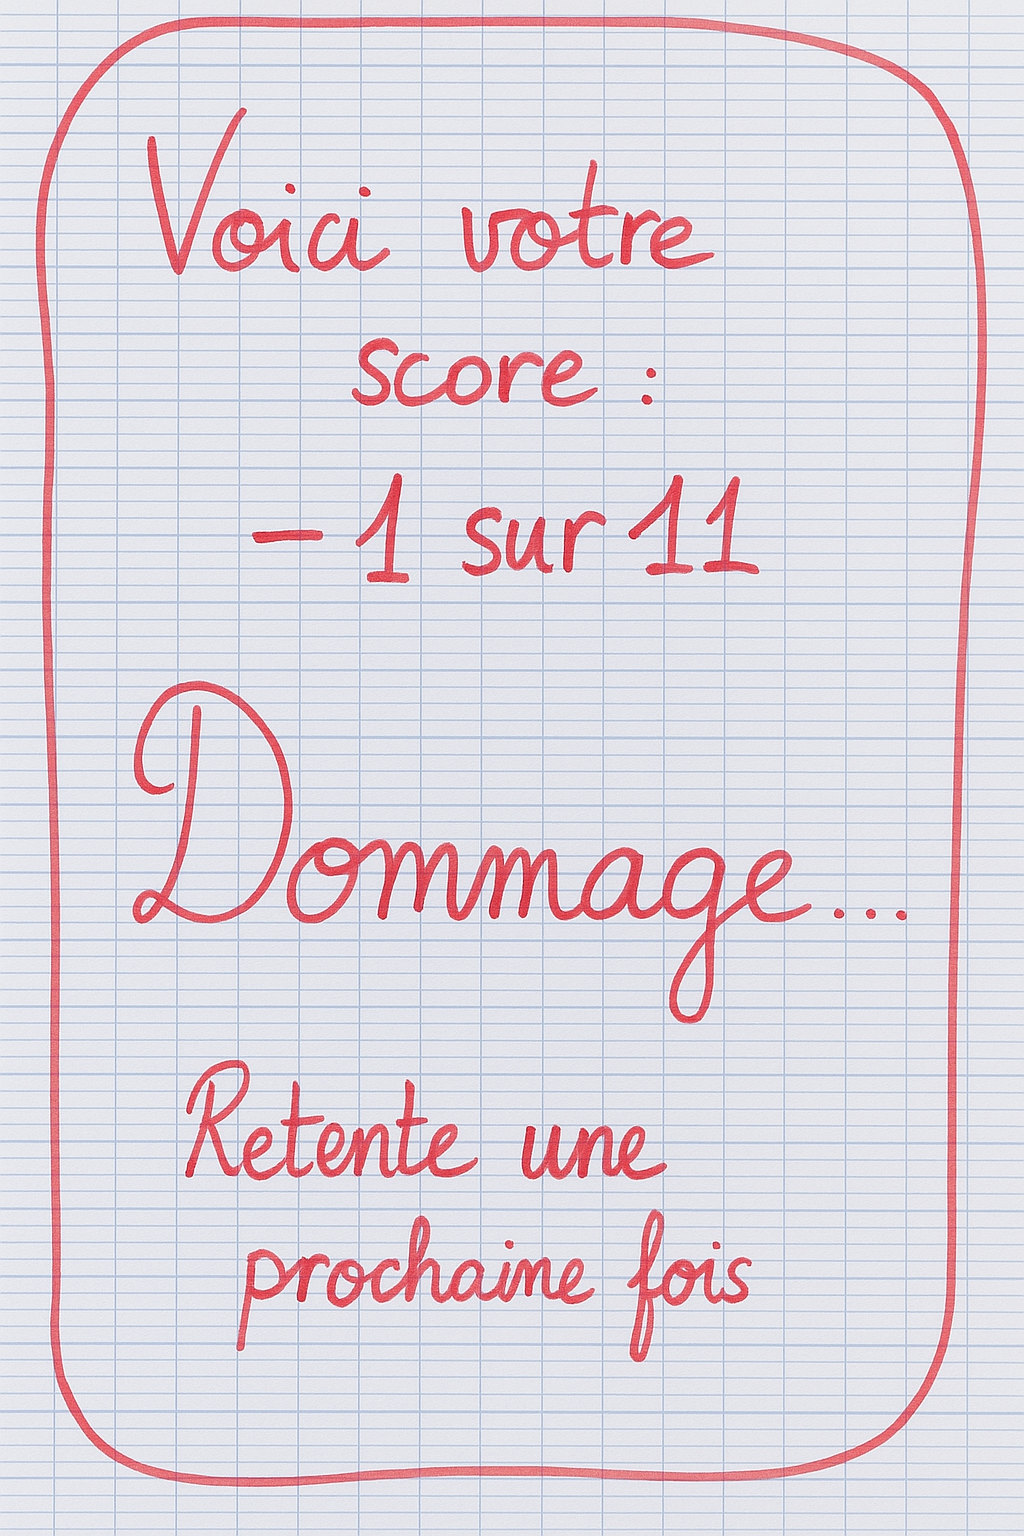 Voici votre
score :
– 1 sur 11
Dommage...
Retente une
prochaine fois